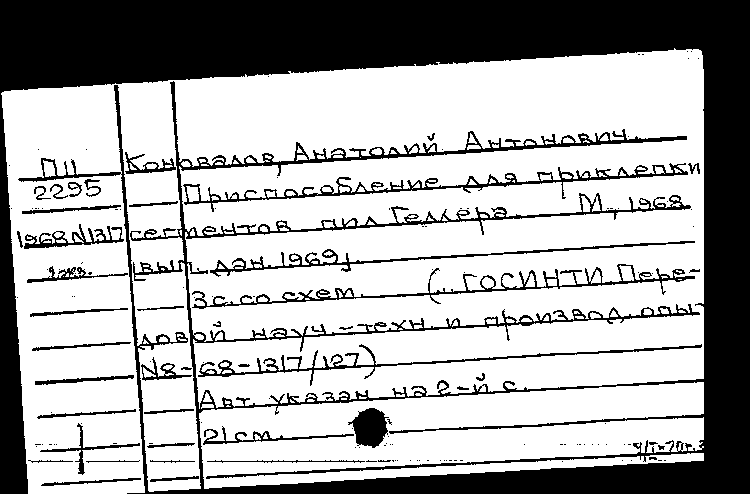 П11 Коновалов, Анатолий Антонович.
2295 Приспособление для приклепки
1968 N1317 сегментов пил Геллера. М., 1968
1 экз. [вып. дан. 1969].
3 с. со схем. (... ГОСИНТИ. Пере-
довой науч.-техн. и производ. опыт
N8-68-1317/127)
Авт. указан на 2-й с.
21 см.